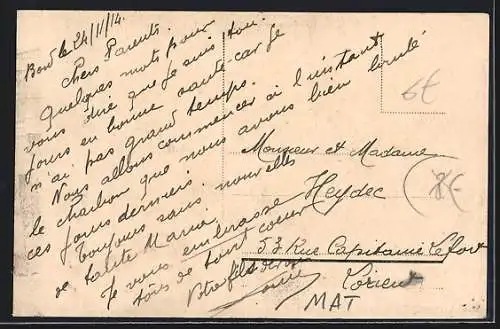 Bord le 24/11/14.
Chers Parents.
Quelques mots pour
vous dire que je suis tou-
jours en bonne santé car je
n'ai pas grand temps.
Nous allons commencer à l'instant
le charbon que nous avons bien
ces jours derniers.
Toujours sans nouvelles
de tante Maria
Je vous embrasse
tous de tout coeur
Votre fils
Louis
Monsieur et Madame
Heydec
53 Rue Capitaine Lefort
Lorient
MAT
6€
8€